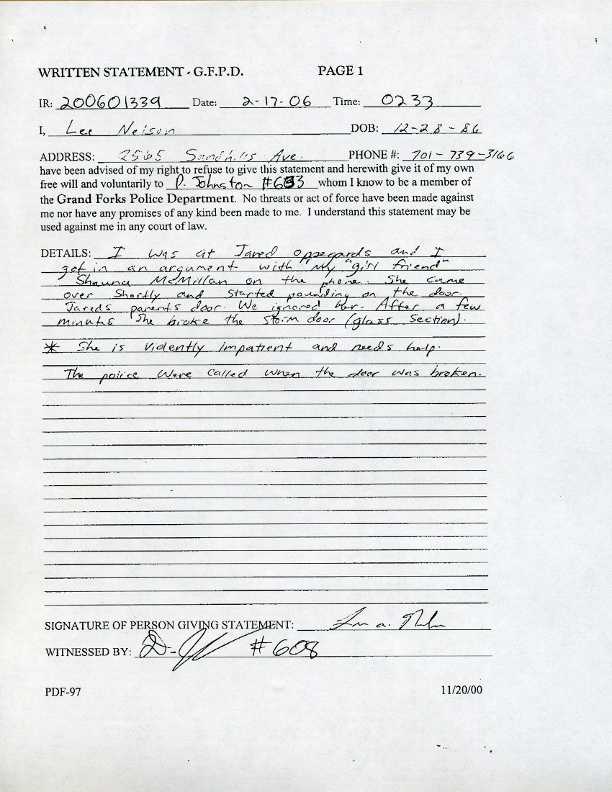 WRITTEN STATEMENT - G.F.P.D. PAGE 1
IR: 200601339 Date: 2-17-06 Time: 0233
I, Lee Nelson DOB: 12-28-86
ADDRESS: 2565 Sandhills Ave. PHONE #: 701-739-3166
have been advised of my right to refuse to give this statement and herewith give it of my own
free will and voluntarily to P. Johnston whom I know to be a member of
the Grand Forks Police Department. No threats or act of force have been made against
me nor have any promises of any kind been made to me. I understand this statement may be
used against me in any court of law.
DETAILS: I was at Jared Oppegards and I
get in an argument with my "girl friend"
Shauna McMillan on the phone. She came
over shortly and started pounding on the door
Jareds parents door. We ignored her. After a few
minutes she broke the storm door (glass section).
* She is violently impatient and needs help.
The police were called when the door was broken.
SIGNATURE OF PERSON GIVING STATEMENT:
WITNESSED BY: #608
PDF-97 11/20/00